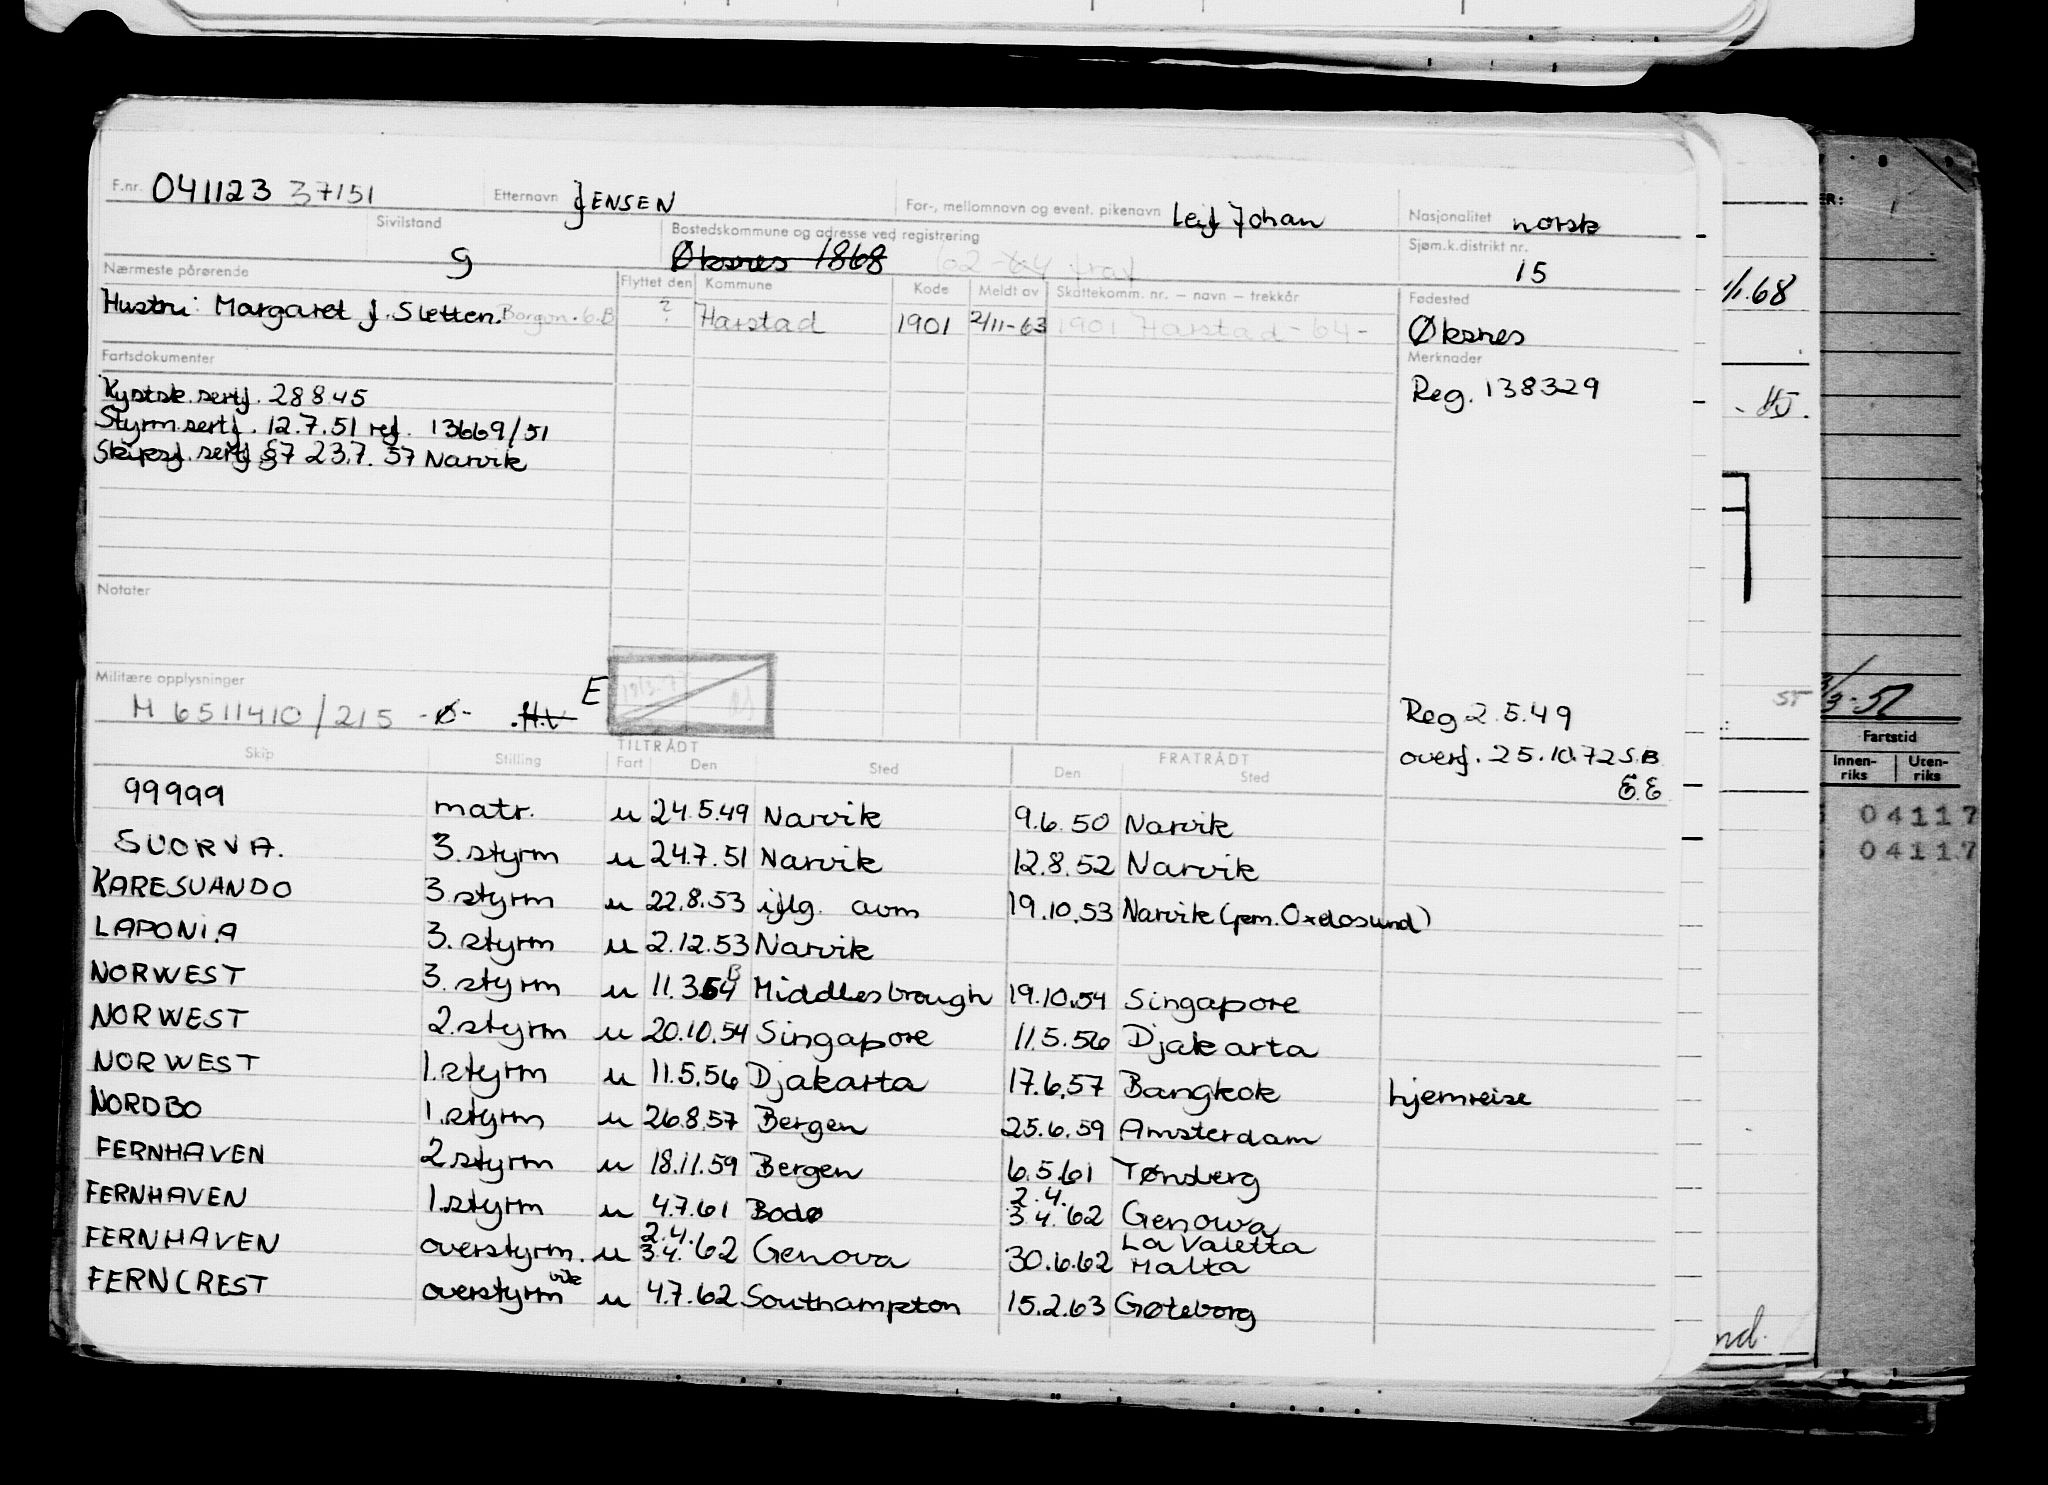 F.nr. 041123 37151 Etternavn JENSEN For-, mellomnavn og event. pikenavn Leif Johan Nasjonalitet norsk
Sivilstand g Bostedskommune og adresse ved registrering Øksnes 1868 Sjøm.k.distrikt nr. 15
Nærmeste pårørende Flyttet den Kommune Kode Meldt av Skattekomm. nr. — navn — trekkår Fødested
Hustru: Margaret f. Sletten. ? Harstad 1901 2/11-63 1901 Harstad - 64 - Øksnes
Fartsdokumenter Merknader
Kystsk. sertf. 28845 Reg. 138329
Styrm.sertf. 12.7.51 ref. 13669/51
Skipsf. sertf. §7 23.7.57 Narvik
Notater
Militære opplysninger E
H 6511410/215 -Ø- .H.V Reg 2.5.49
overf. 25.10.72 S.B.
E.E
Skip Stilling TILTRÅDT Fart Den Sted FRATRÅDT Den Sted
99999 matr. u 24.5.49 Narvik 9.6.50 Narvik
SUORVA. 3.styrm u 24.7.51 Narvik 12.8.52 Narvik
KARESUANDO 3.styrm u 22.8.53 iflg. avm 19.10.53 Narvik (pem. Oxelosund)
LAPONIA 3.styrm u 2.12.53 Narvik
NORWEST 3.styrm u 11.354 B Middlesbrough 19.10.54 Singapore
NORWEST 2.styrm u 20.10.54 Singapore 11.5.56 Djakarta
NORWEST 1.styrm u 11.5.56 Djakarta 17.6.57 Bangkok hjemreise
NORDBO 1.styrm u 26.8.57 Bergen 25.6.59 Amsterdam
FERNHAVEN 2.styrm u 18.11.59 Bergen 6.5.61 Tønsberg
FERNHAVEN 1.styrm u 4.7.61 Bodø 2.4. 3.4.62 Genowa
FERNHAVEN overstyrm. u 2.4. 3.4.62 Genova 30.6.62 La Valetta Malta
FERNCREST overstyrm vik u 4.7.62 Southampton 15.2.63 Gøteborg
ER:
1/1.68
- 45.
ST
/3-52
Fartstid
Innen-riks Uten-riks
04117
04117
nd.